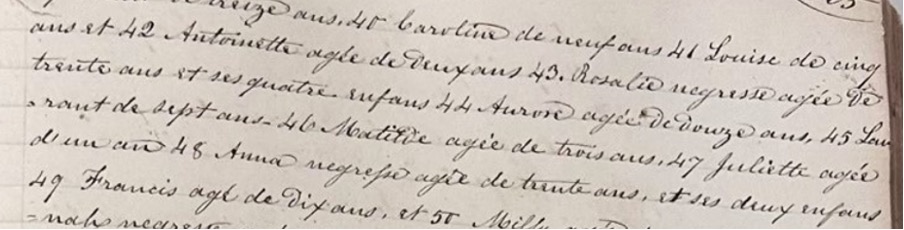 treize ans, 40 Caroline de neuf ans 41 Louise de cinq
ans et 42 Antoinette agée de Deux ans 43. Rosalie negresse agée De
trente ans et ses quatre enfans 44 Aurore agée De douze ans, 45 Lau
=rant de sept ans - 46 Matilde agée de trois ans, 47 Juliette agée
d'un an 48 Anna negresse agée de trente ans, et ses deux enfans
49 Francis agé de Dix ans, et 50 Milly
=nah negresse